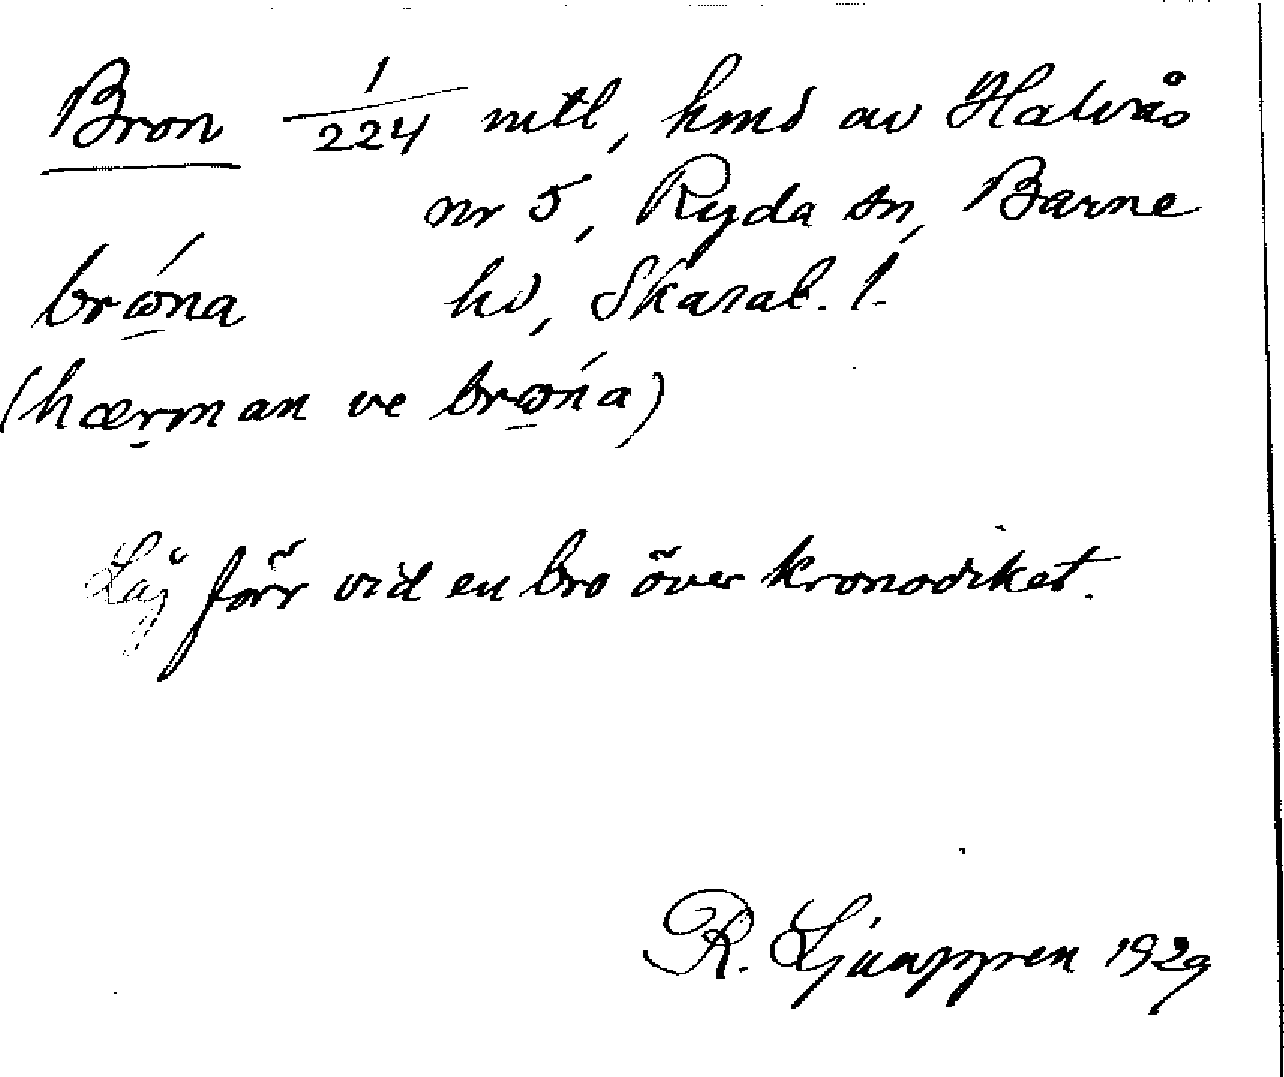 Bron 1/224 mtl, hmd av Halvås
nr 5, Ryda sn, Barne
brǿna hd, Skarab. l.
(hærman ve brǿna)
Låg förr vid en bro över kronodiket.
R. Ljunggren 1929